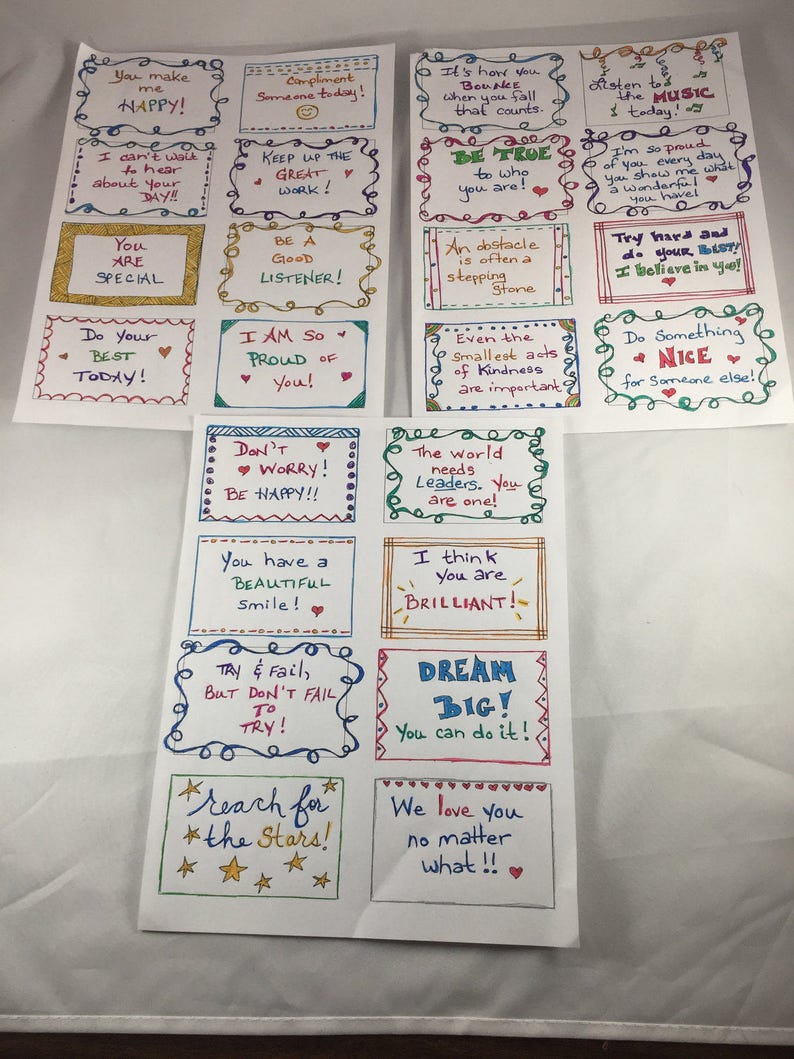 You make
me
HAPPY!
Compliment
Someone today!
I can't wait
to hear
about your
DAY!!
KEEP UP THE
GREAT
WORK!
YOU
ARE
SPECIAL
BE A
GOOD
LISTENER!
Do Your
BEST
TODAY!
I AM SO
PROUD OF
YOU!
It's how you
BOUNCE
when you fall
that counts.
Listen to
the MUSIC
today!
BE TRUE
to who
you are!
I'm so proud
of you every day
you show me what
a wonderful
you have!
An obstacle
is often a
stepping
Stone
Try hard and
do your BEST!
I believe in you!
Even the
smallest acts
of Kindness
are important
Do Something
NICE
for someone else!
DON'T
WORRY!
BE HAPPY!!
The world
needs
Leaders. You
are one!
You have a
BEAUTIFUL
smile!
I think
you are
BRILLIANT!
TRY & Fail,
BUT DON'T FAIL
TO
TRY!
DREAM
BIG!
You can do it!
reach for
the Stars!
We love you
no matter
what!!